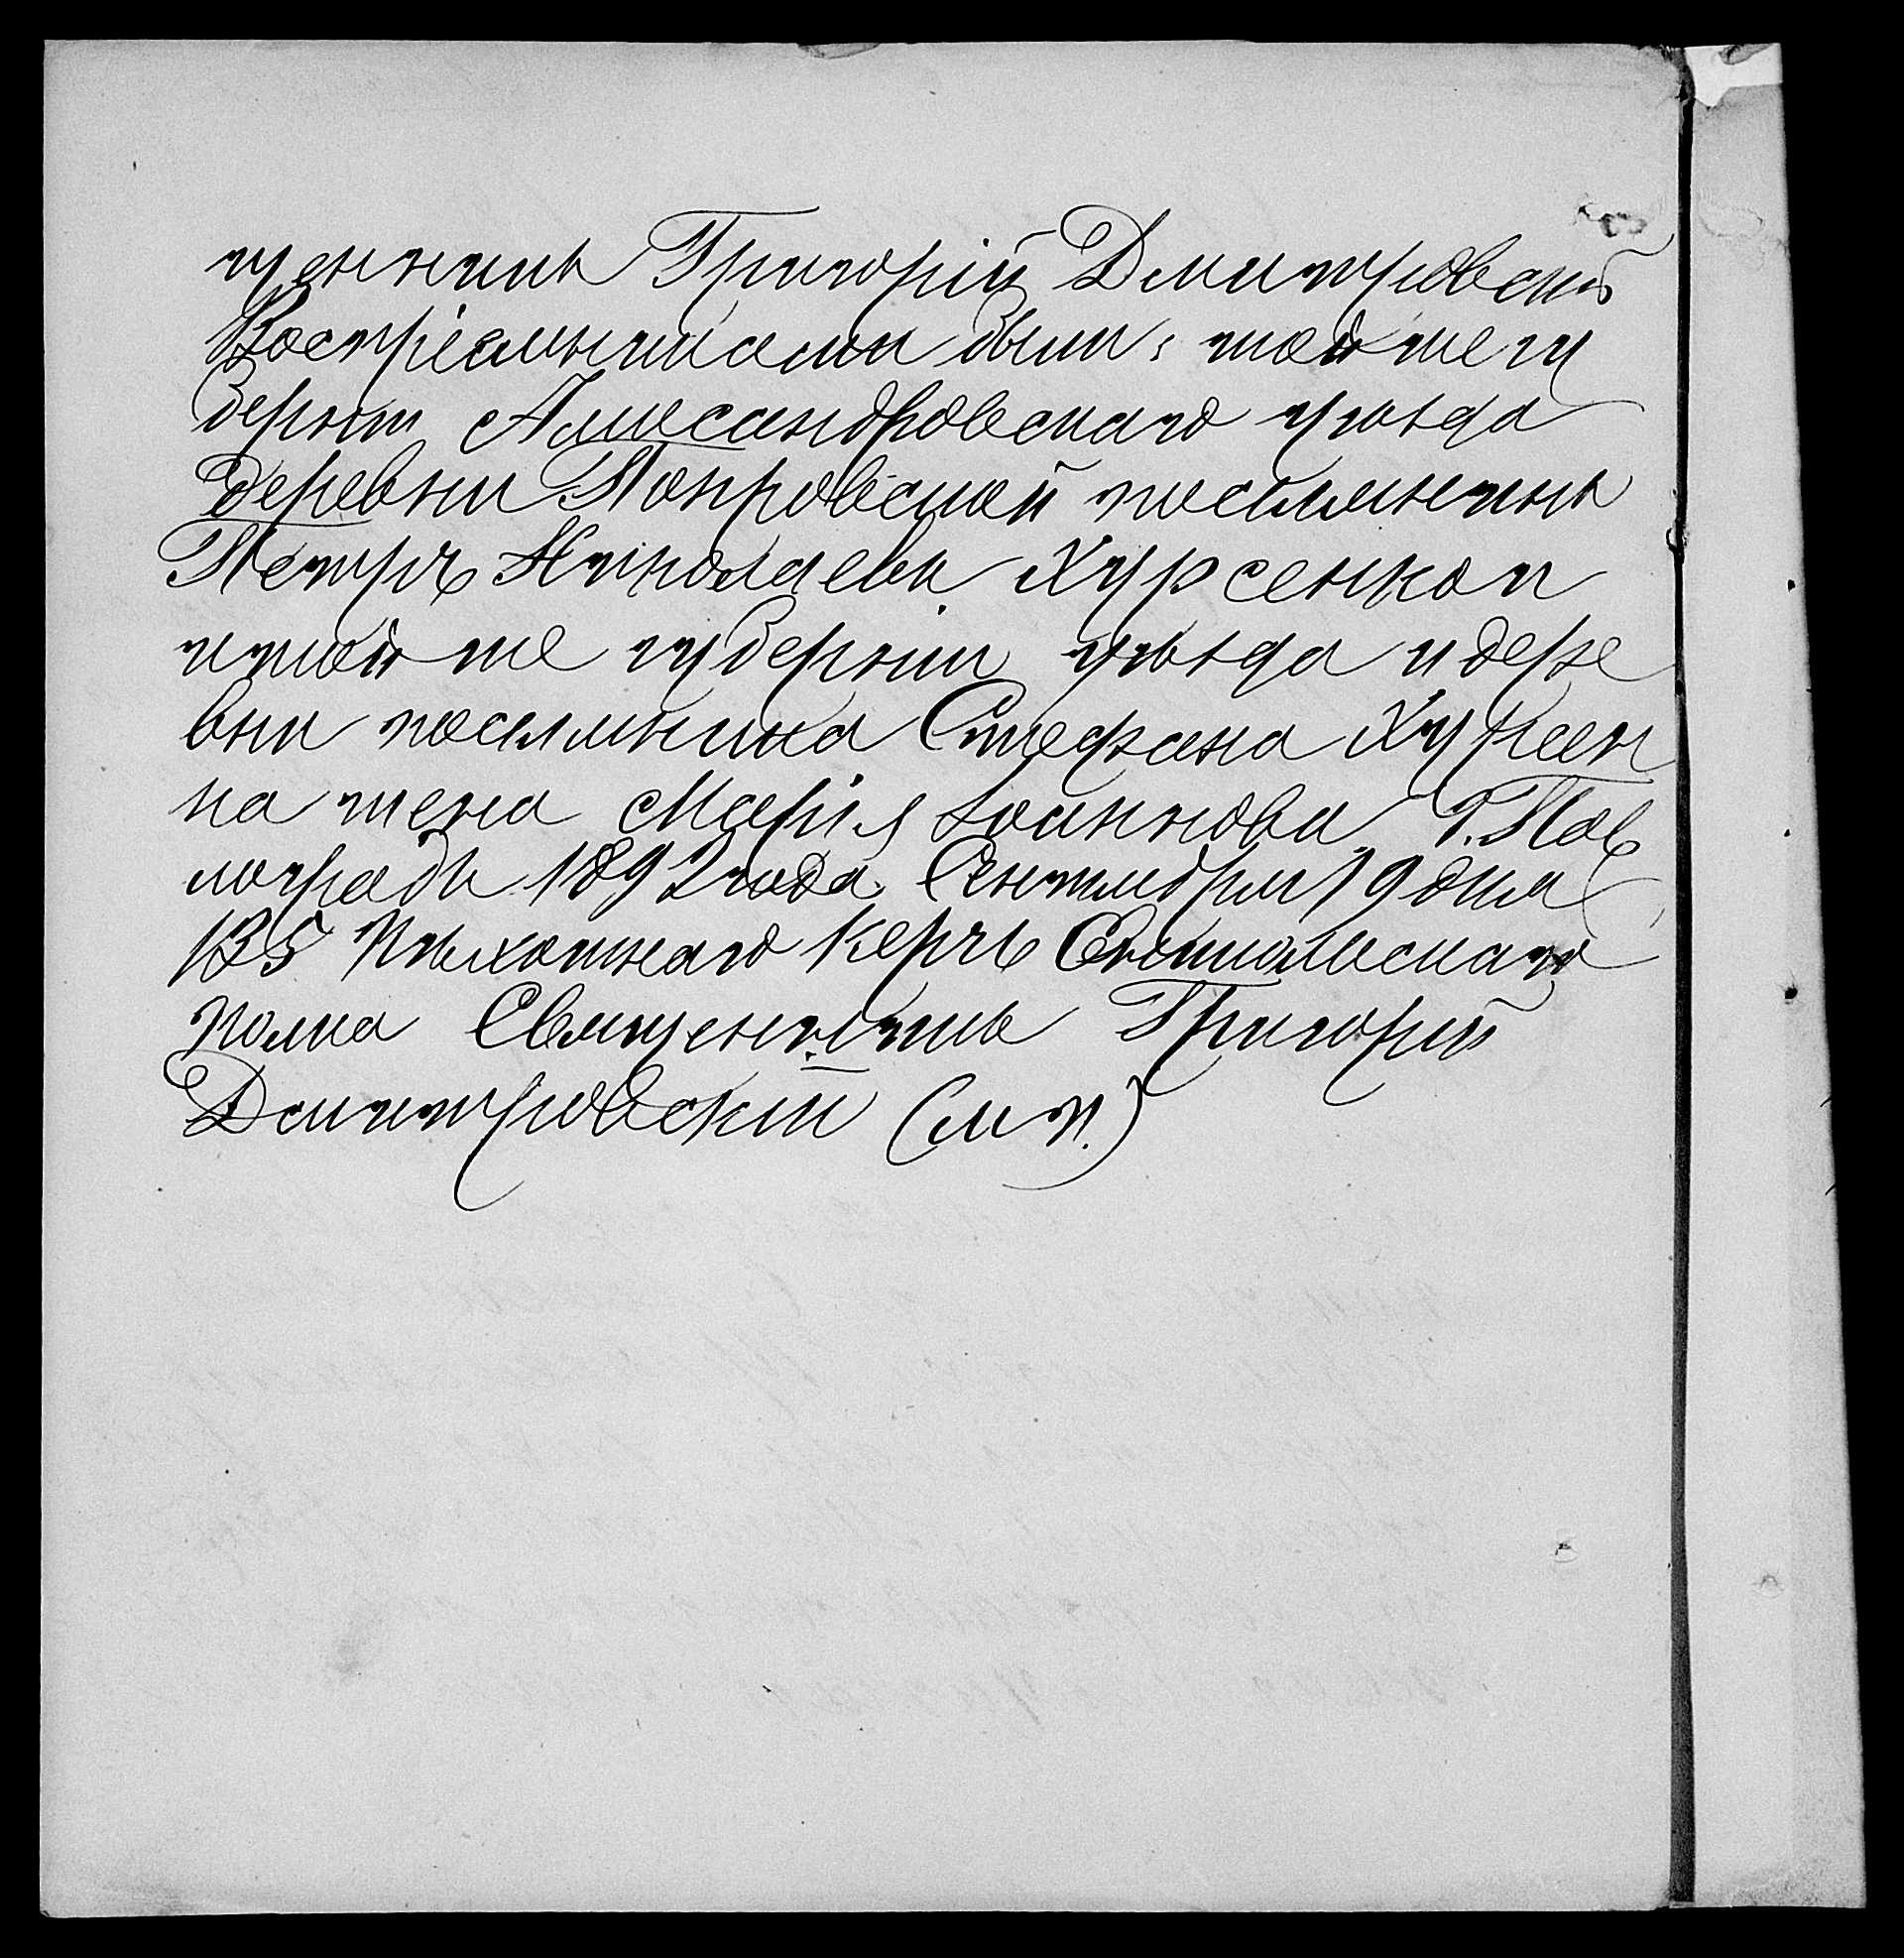 щенникъ Григорій Дмитровскій
Воспріемниками были: той же гу
берніи Александровскаго уѣзда
деревни Покровской поселянинъ
Петръ Николаевъ Хурсенко и
и той же губерніи уѣзда и дере
вни поселянина Стефана Хурсен
ка жена Марія Іоаннова Г. Пав
лоградъ 1892 года Сентября 19 дня
135 Пѣхотнаго Керчь Еникольскаго
полка Священникъ Григорій
Дмитровскій (М П.)